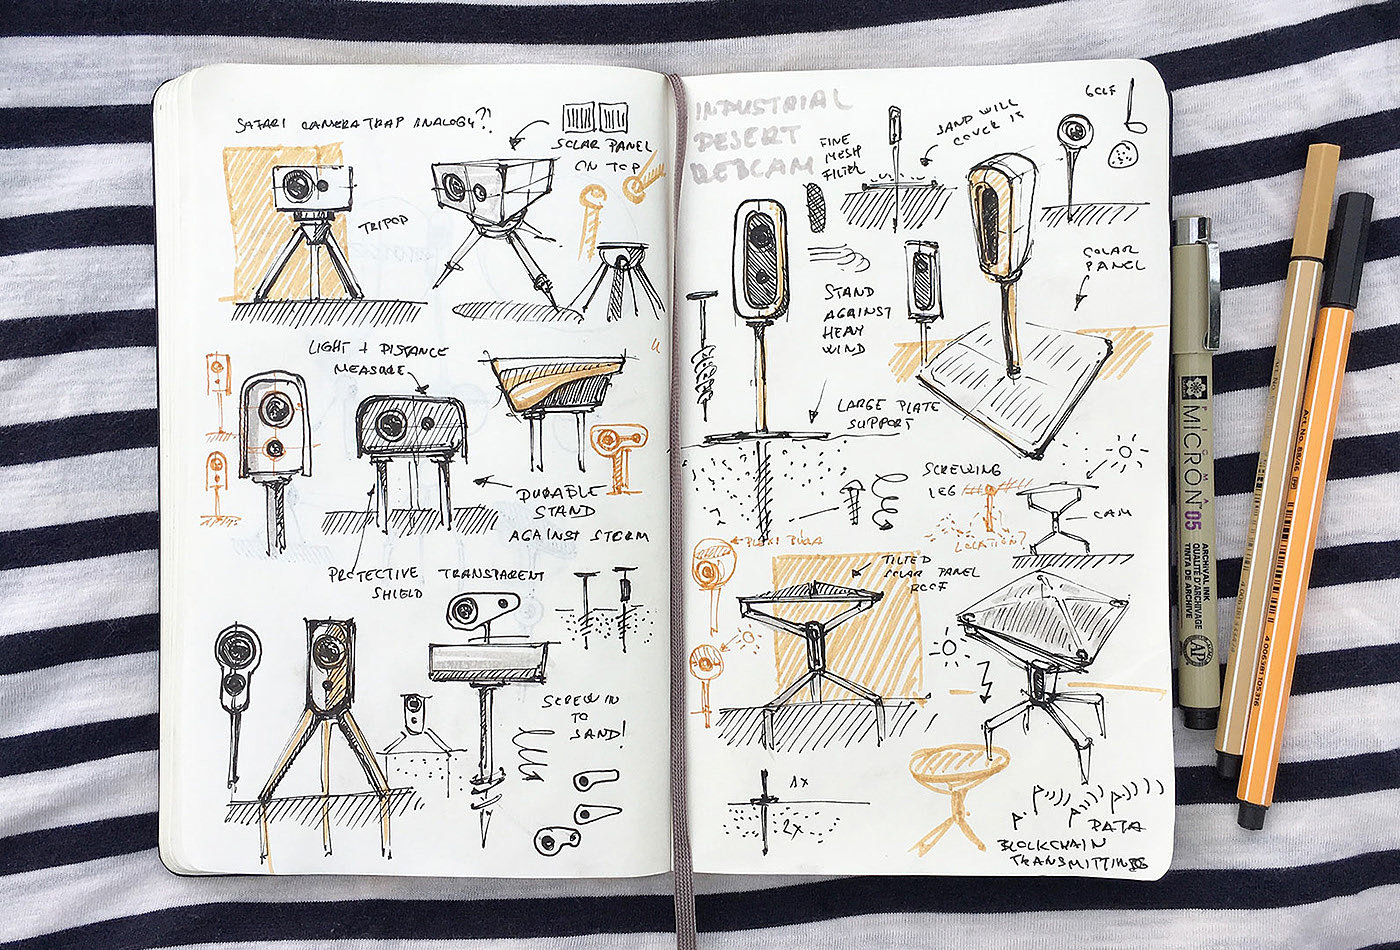 SAFARI CAMERATRAP ANALOGY?!
SOLAR PANEL
ON TOP
TRIPOD
LIGHT + DISTANCE
MEASURE
DURABLE
STAND
AGAINST STORM
PROTECTIVE TRANSPARENT
SHIELD
SCREW IN
TO
SAND!
INDUSTRIAL
DESERT
WEBCAM
FINE
MESH
FILTER
SAND WILL
COVER IS
GOLF
SOLAR
PANEL
STAND
AGAINST
HEAVY
WIND
LARGE PLATE
SUPPORT
SCREWING
LEG
CAM
LOCATION?
TILTED
SOLAR PANEL
ROOF
1x
2x
DATA
BLOCKCHAIN
TRANSMITTING
PIGMA
MICRON 05
ARCHIVAL INK
QUALITÉ D'ARCHIVAGE
TINTA DE ARCHIVE
AP
Art. No. 88/46
4 006381 105316